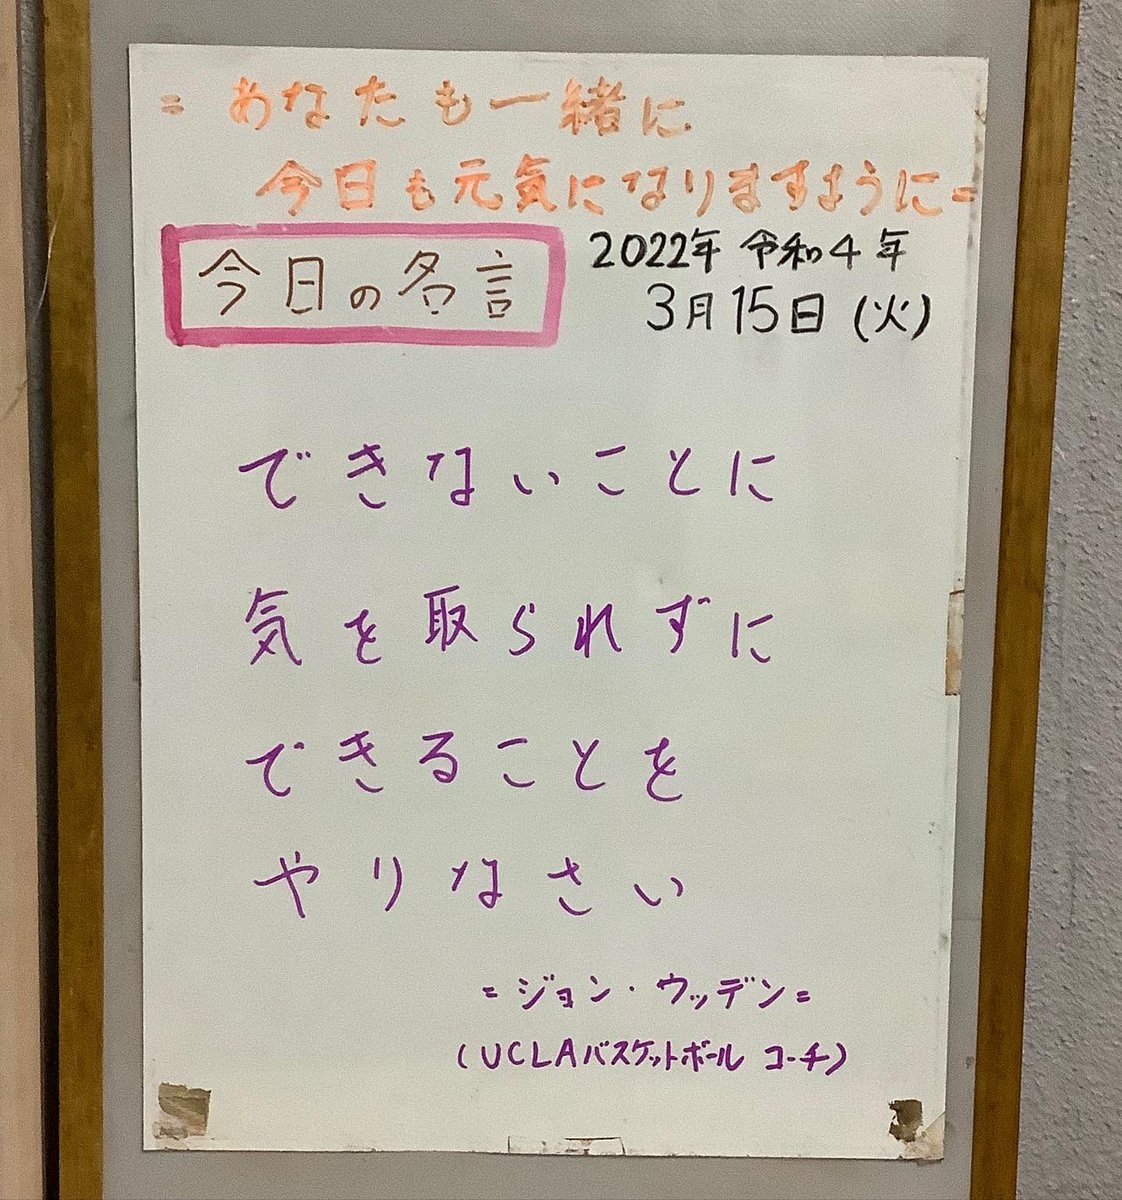 = あなたも一緒に
今日も元気になりますように=
今日の名言
2022年 令和4年
3月15日(火)
できないことに
気を取られずに
できることを
やりなさい
=ジョン・ウッデン=
(UCLAバスケットボール コーチ)